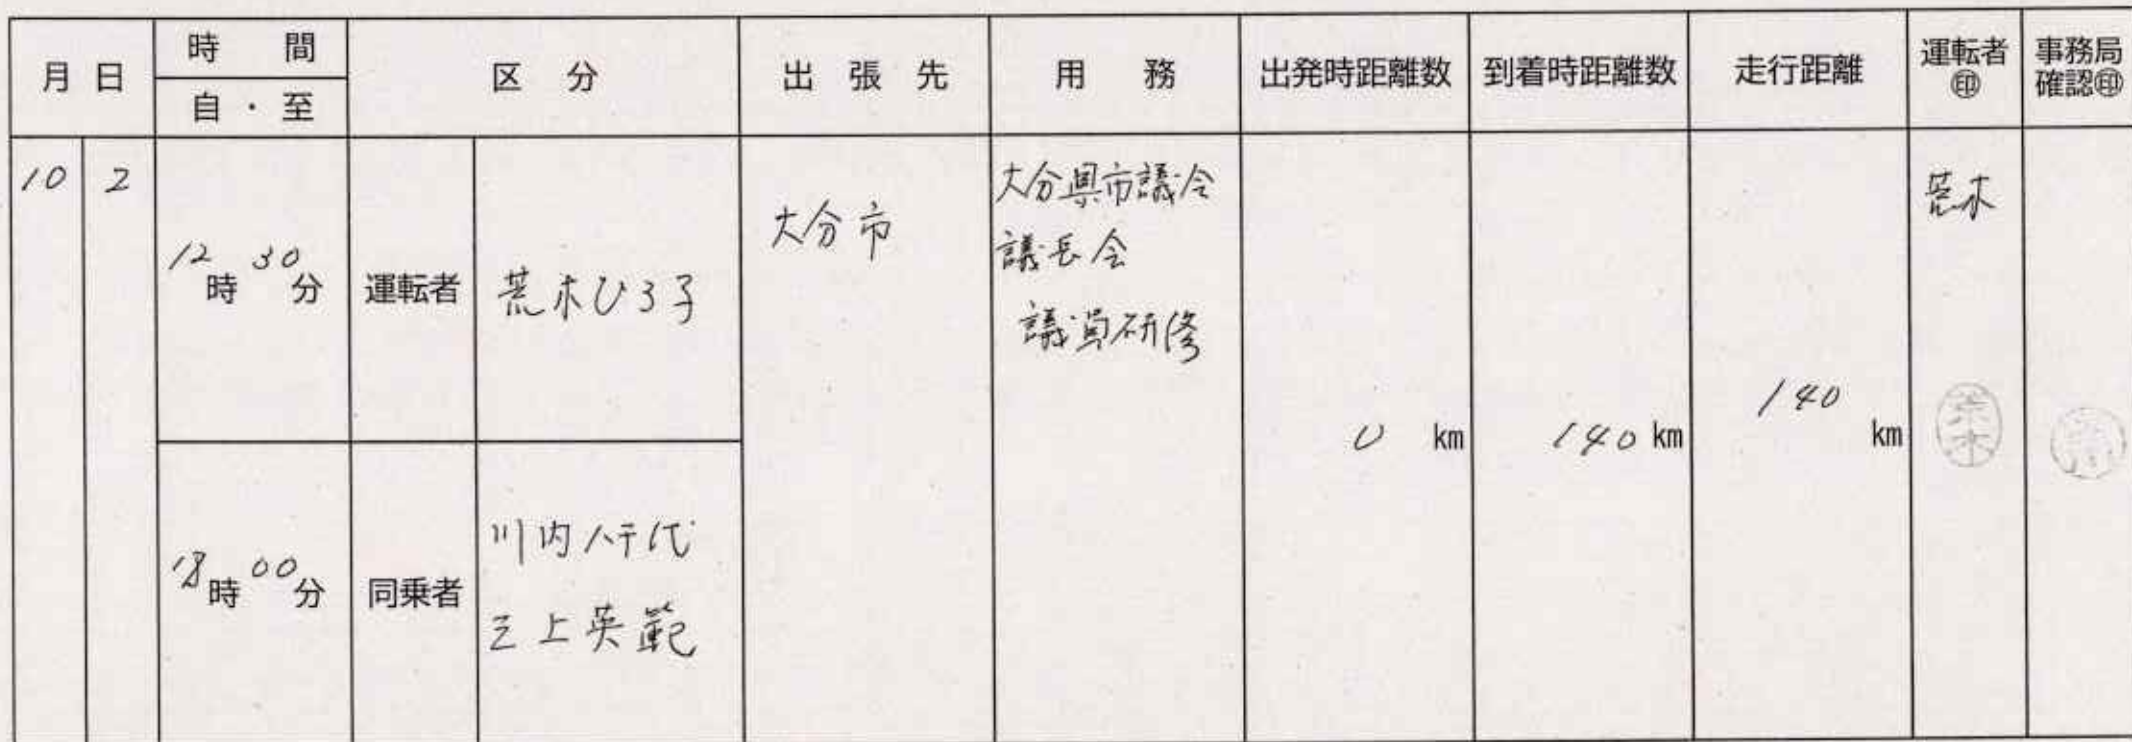 月 日
時 間
自 ・ 至
区 分
出 張 先
用 務
出発時距離数
到着時距離数
走行距離
運転者
㊞
事務局
確認㊞
10 2
12時 30分
運転者
荒木ひろ子
大分市
大分県市議会
議長会
議員研修
0 km
140 km
140 km
荒木
荒木
18時 00分
同乗者
川内八千代
三上英範